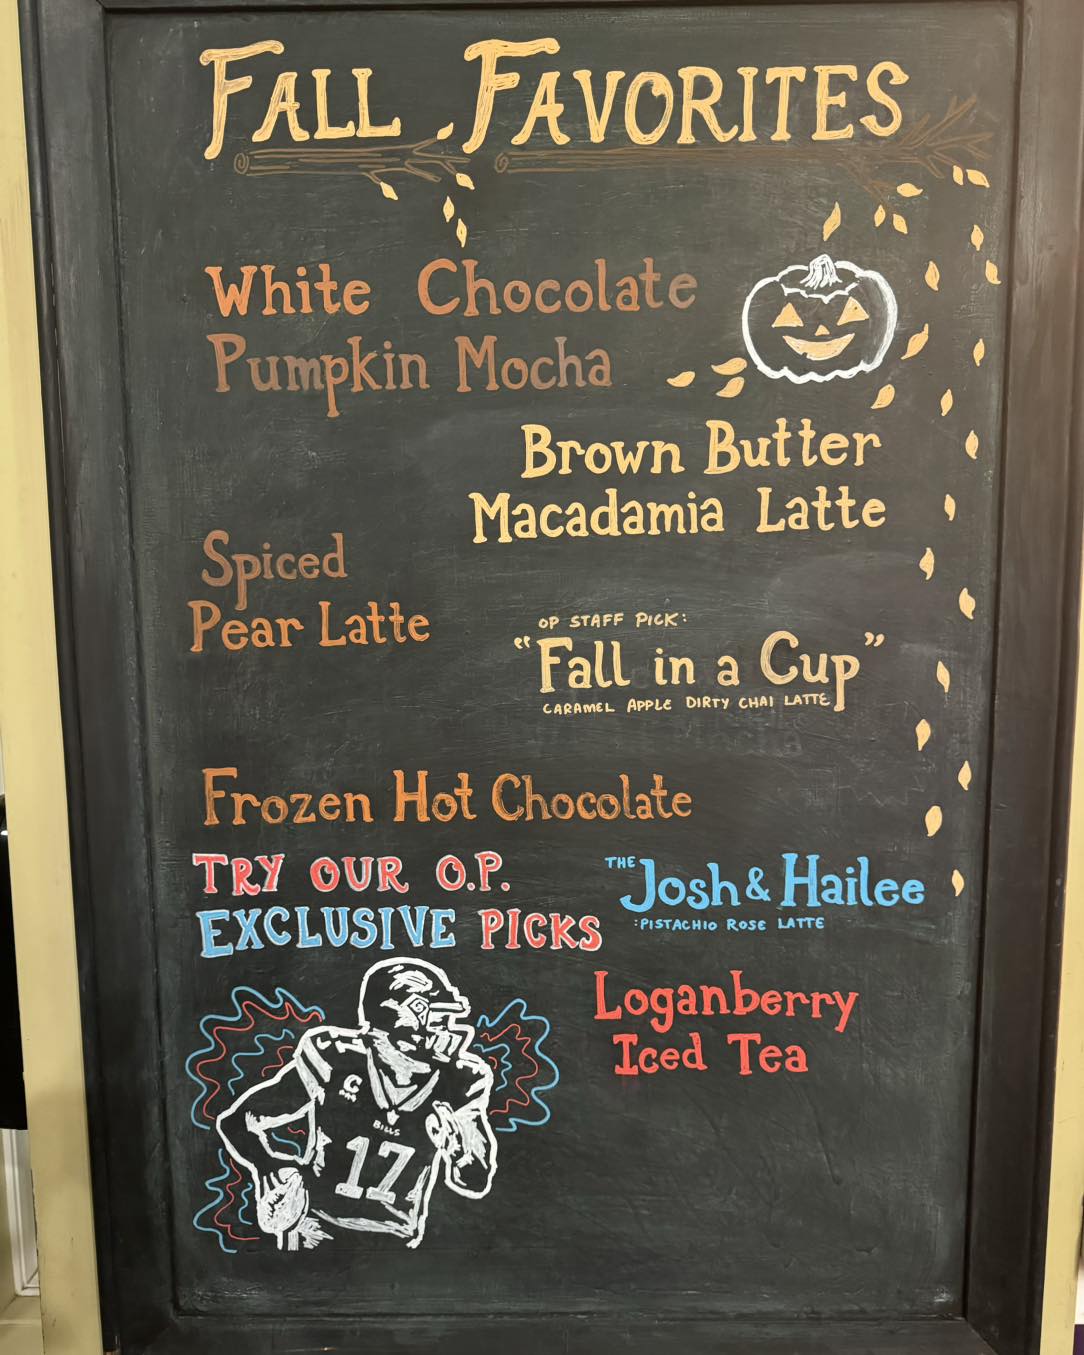 FALL FAVORITES
White Chocolate
Pumpkin Mocha
Brown Butter
Macadamia Latte
Spiced
Pear Latte
OP STAFF PICK:
"Fall in a Cup"
CARAMEL APPLE DIRTY CHAI LATTE
Frozen Hot Chocolate
TRY OUR O.P.
EXCLUSIVE PICKS
THE Josh & Hailee
:PISTACHIO ROSE LATTE
Loganberry
Iced Tea
C
BILLS
17